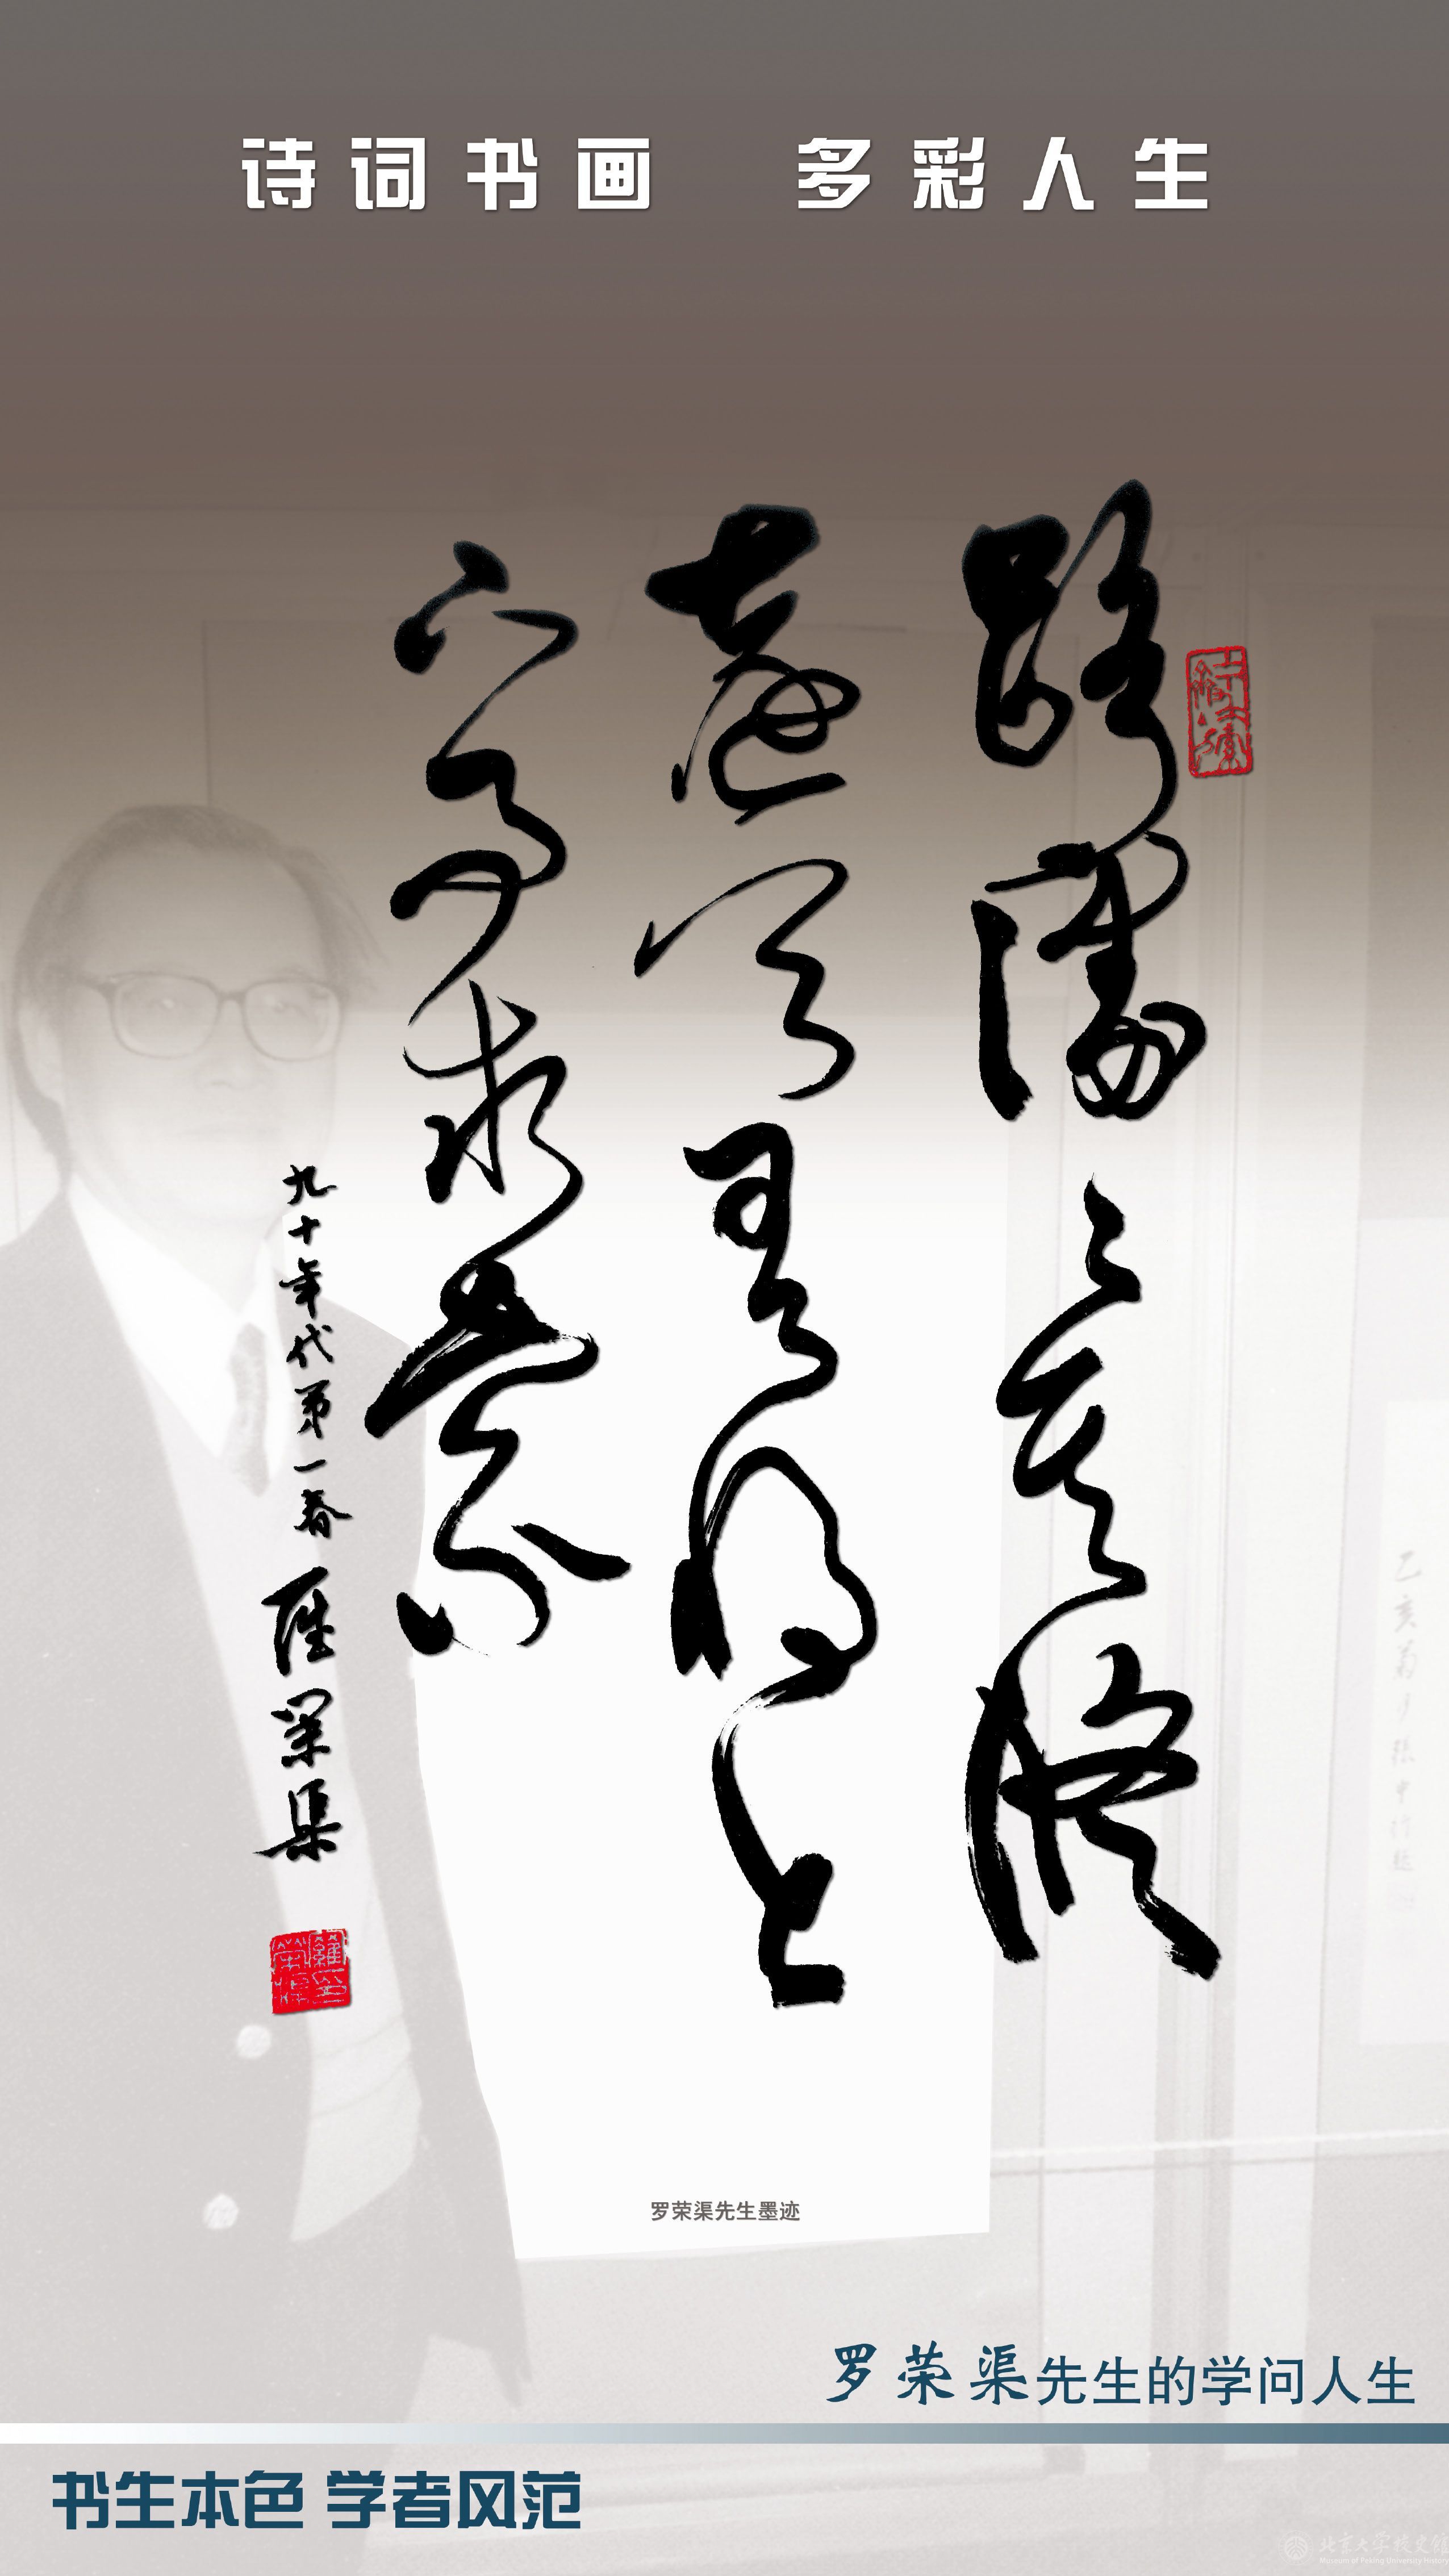 诗词书画 多彩人生
路漫〻其修
遠兮吾將上
下而求索
九十年代第一春 羅榮渠
罗荣渠先生墨迹
罗荣渠先生的学问人生
书生本色 学者风范
北京大学校史馆
Museum of Peking University History